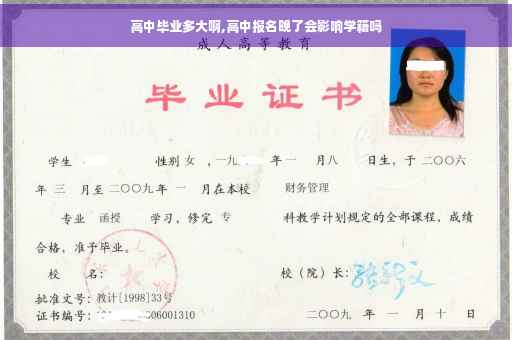 高中毕业多大啊,高中报名晚了会影响学籍吗
成人高等教育
毕业证书
学生 性别 女 ,一九 年一 月八 日生,于二〇〇六
年 三 月至二〇〇九年 一 月在本校 财务管理
专业 函授 学习,修完 专 科教学计划规定的全部课程,成绩
合格,准予毕业。
校 名: 校(院)长:
批准文号:教计[1998]33号
证书编号: 06001310 二〇〇九 年 一 月 十 日